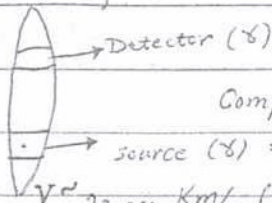 Detector (γ)
Comp
source (γ) =
V~ Km/